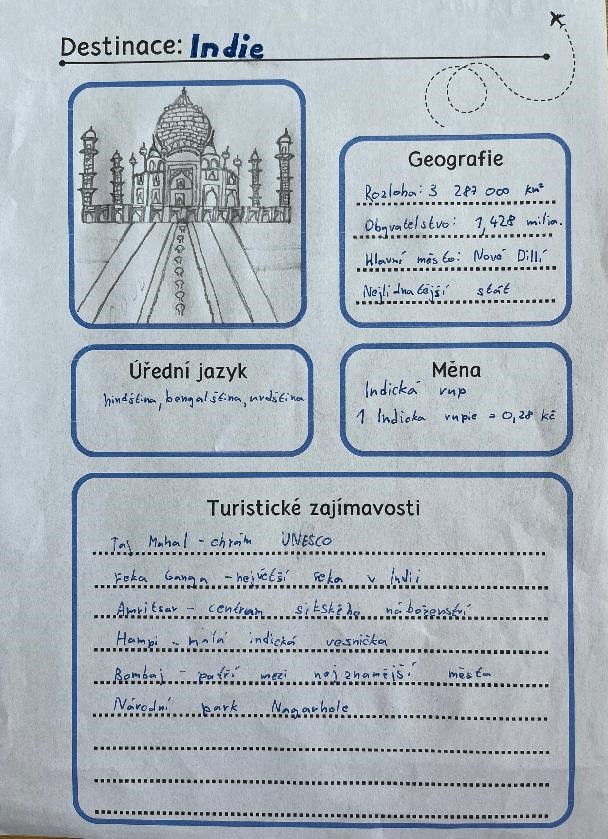 Destinace: Indie
Geografie
Rozloha: 3 287 000 km²
Obyvatelstvo: 1,428 milia.
Hlavní město: Nové Dillí
Nejlidnatější stát
Úřední jazyk
hindština, bengalština, urdština
Měna
Indická rup
1 Indická rupie = 0,28 kč
Turistické zajímavosti
Taj Mahal - chrám UNESCO
řeka Ganga - největší řeka v Indii
Amritsar - centrum sitského náboženství
Hampi - malá indická vesnička
Bombaj - patří mezi nejznamější města
Národní park Nagarhole